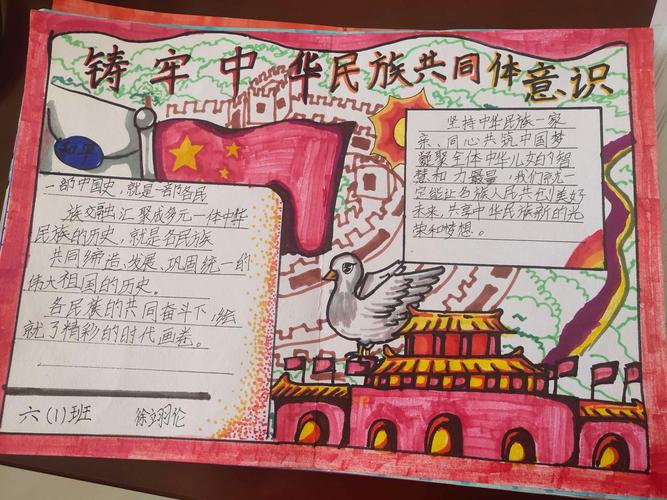 铸牢中华民族共同体意识
和平
一部中国史，就是一部各民
族交融汇聚成多元一体中华
民族的历史，就是各民族
共同缔造、发展、巩固统一的
伟大祖国的历史。
各民族的共同奋斗下，绘
就了精彩的时代画卷。
六（1）班 徐翊伦
坚持中华民族一家
亲、同心共筑中国梦
凝聚全体中华儿女的智
慧和力量，我们就一
定能让各族人民共创美好
未来，共享中华民族新的光
荣和梦想。